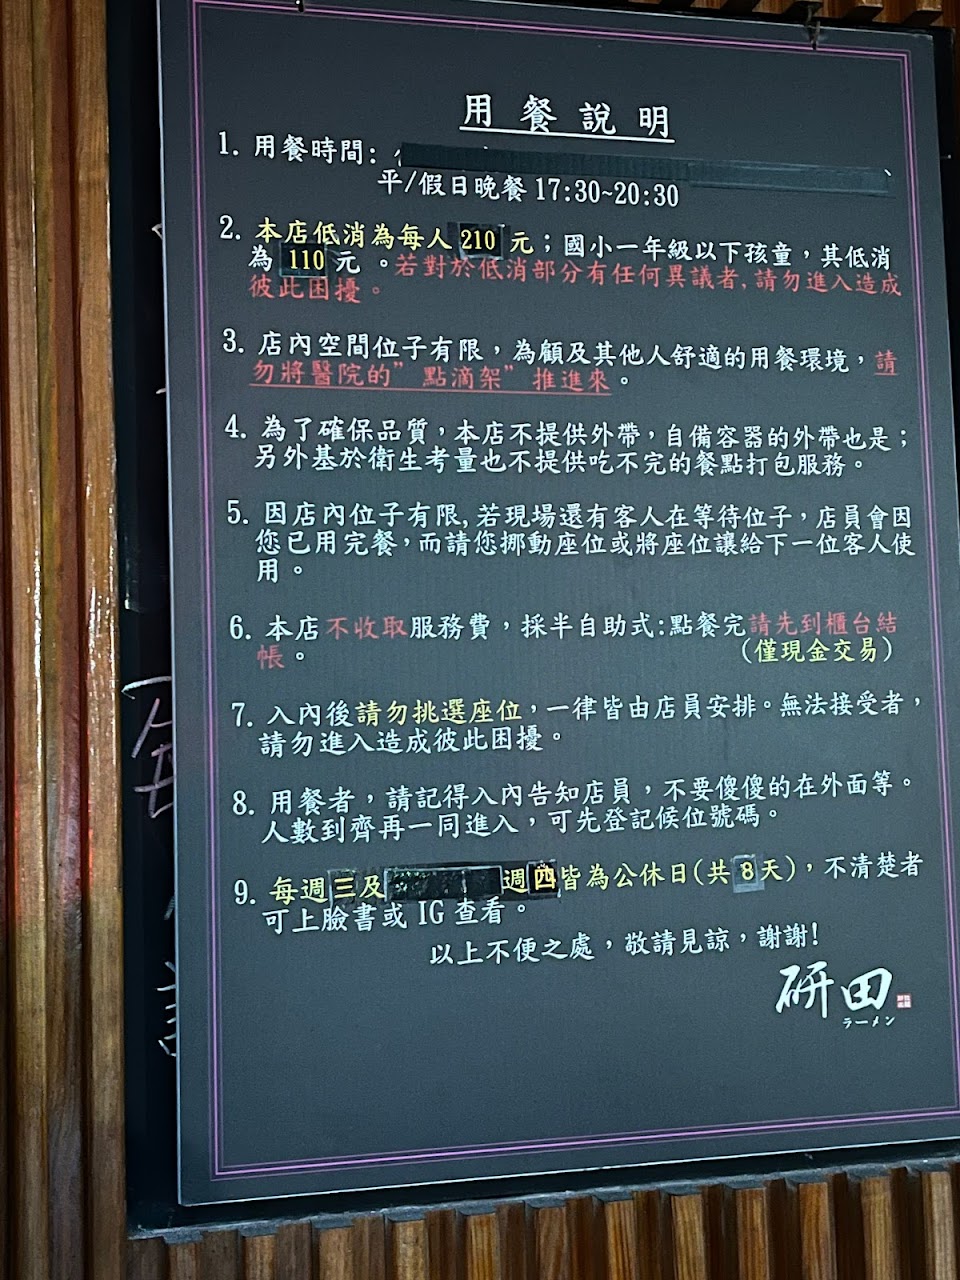 用餐說明
1. 用餐時間:
平/假日晚餐 17:30~20:30
2. 本店低消為每人 210 元；國小一年級以下孩童，其低消
為 110 元 。若對於低消部分有任何異議者,請勿進入造成
彼此困擾。
3. 店內空間位子有限，為顧及其他人舒適的用餐環境，請
勿將醫院的”點滴架”推進來。
4. 為了確保品質，本店不提供外帶，自備容器的外帶也是；
另外基於衛生考量也不提供吃不完的餐點打包服務。
5. 因店內位子有限,若現場還有客人在等待位子，店員會因
您已用完餐，而請您挪動座位或將座位讓給下一位客人使
用。
6. 本店不收取服務費，採半自助式:點餐完請先到櫃台結
帳。 (僅現金交易)
7. 入內後請勿挑選座位，一律皆由店員安排。無法接受者，
請勿進入造成彼此困擾。
8. 用餐者，請記得入內告知店員，不要傻傻的在外面等。
人數到齊再一同進入，可先登記候位號碼。
9. 每週三及週四皆為公休日(共8天)，不清楚者
可上臉書或 IG 查看。
以上不便之處，敬請見諒，謝謝!
研田
ラーメン